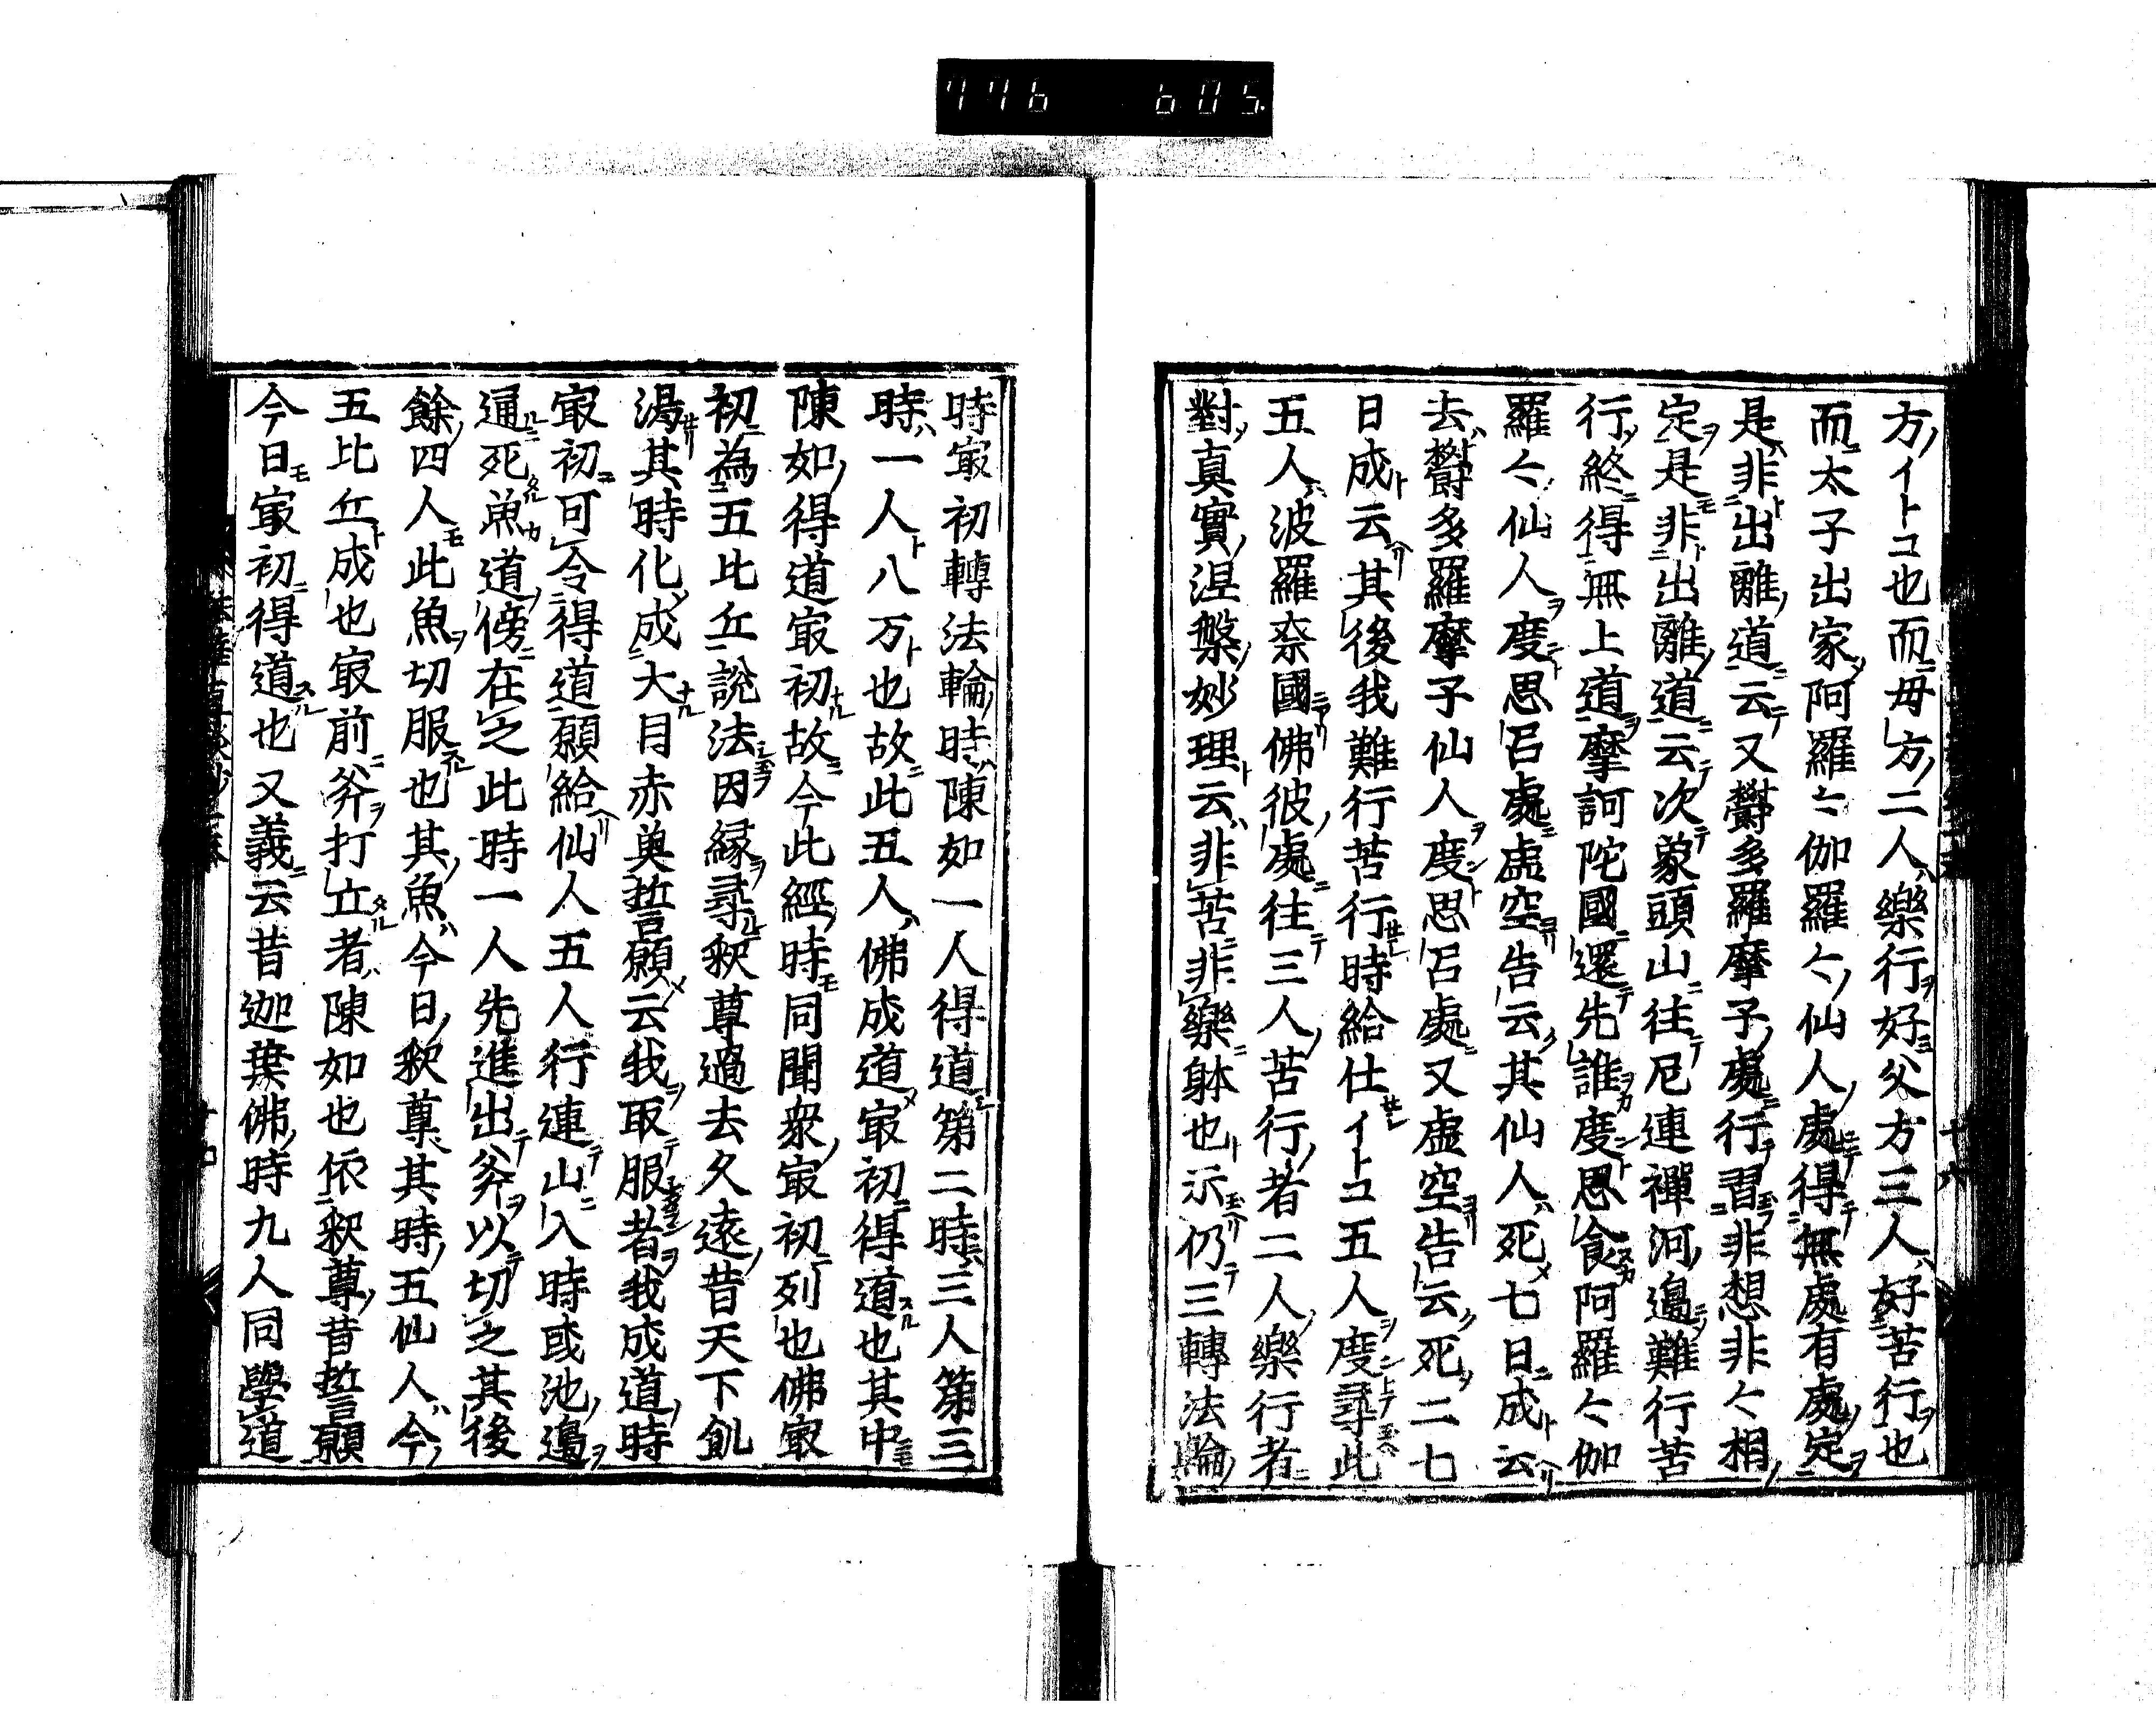 776 605.
方ノイトコ也而ニ母方ノ二人ハ樂行ヲ好ミ父方三人ハ好苦行ヲ也
而ニ太子出家シ阿羅〻伽羅〻ノ仙人ノ處ニテ得テ無處有處ノ定ヲ
是ハ非ト出離ノ道ニ云テ又欝多羅摩子ノ處ニ行テ習玉フ非想非〻相ノ
定ヲ是モ非ト出離ノ道ニ云テ次テ蒙頭山ニ往テ尼連禪河ノ邉ニシテ難行苦
行シ終ニ得無上道ヲ摩訶陀國ニ還テ先誰ヲカ度シト思食スカ阿羅〻伽
羅〻仙人ヲ度ント思召處ニ虚空ヨリ告云ク其仙人ハ死シ七日ニ成ト云ヘリ
去ハ欝多羅摩子仙人ヲ度シト思召處ニ又虚空ヨリ告云ク死シ二七
日成ト云ヘリ其後我難行苦行セシ時給仕セシイトコ五人ヲ度シト尋玉ヘハ此
五人ハ波羅奈國ニアリ佛彼ノ處ニ往テ三人ノ苦行ノ者二人ノ樂行者ニ
對シ真實ノ涅槃ノ妙理ト云ハ非苦ニ非樂ニ躰也ト示玉ヘリ仍テ三轉法輪ノ
時㝡初轉法輪ノ時ハ陳如一人得道シ第二時ハ三人第三
時ハ一人ト八万ト也故ニ此五人ハ佛成道シ㝡初ニ得道スル也其中ニモ
陳如ノ得道㝡初ナル故ニ今此經ノ時モ同聞衆ノ㝡初ニ列也佛㝡
初ニ為五比丘説法シ玉フ因縁ヲ尋ルニ釈尊過去久遠ノ昔天下飢
渇セリ其時化シ成大ナル目赤奥誓願シ云我ヲ取テ服者ヲ我成道ノ時
㝡初ニ可令得道願給ヘリ仙人五人行連テ山ニ入時或池ノ邉ヲ
通ルニ死タル魚カ道ノ傍ニ在之此時一人先進出テ斧ヲ以テ切之其後
餘ノ四人モ此魚ヲ切服スル也其ノ魚ハ今日ノ釈尊ハ其時ノ五仙人ハ今ノ
五比丘ト成也㝡前ニ斧ヲ打立タル者ハ陳如也依釈尊ノ昔誓願ニ
今日モ㝡初ニ得道スル也又義ニ云昔迦葉佛ノ時九人同學道
十六